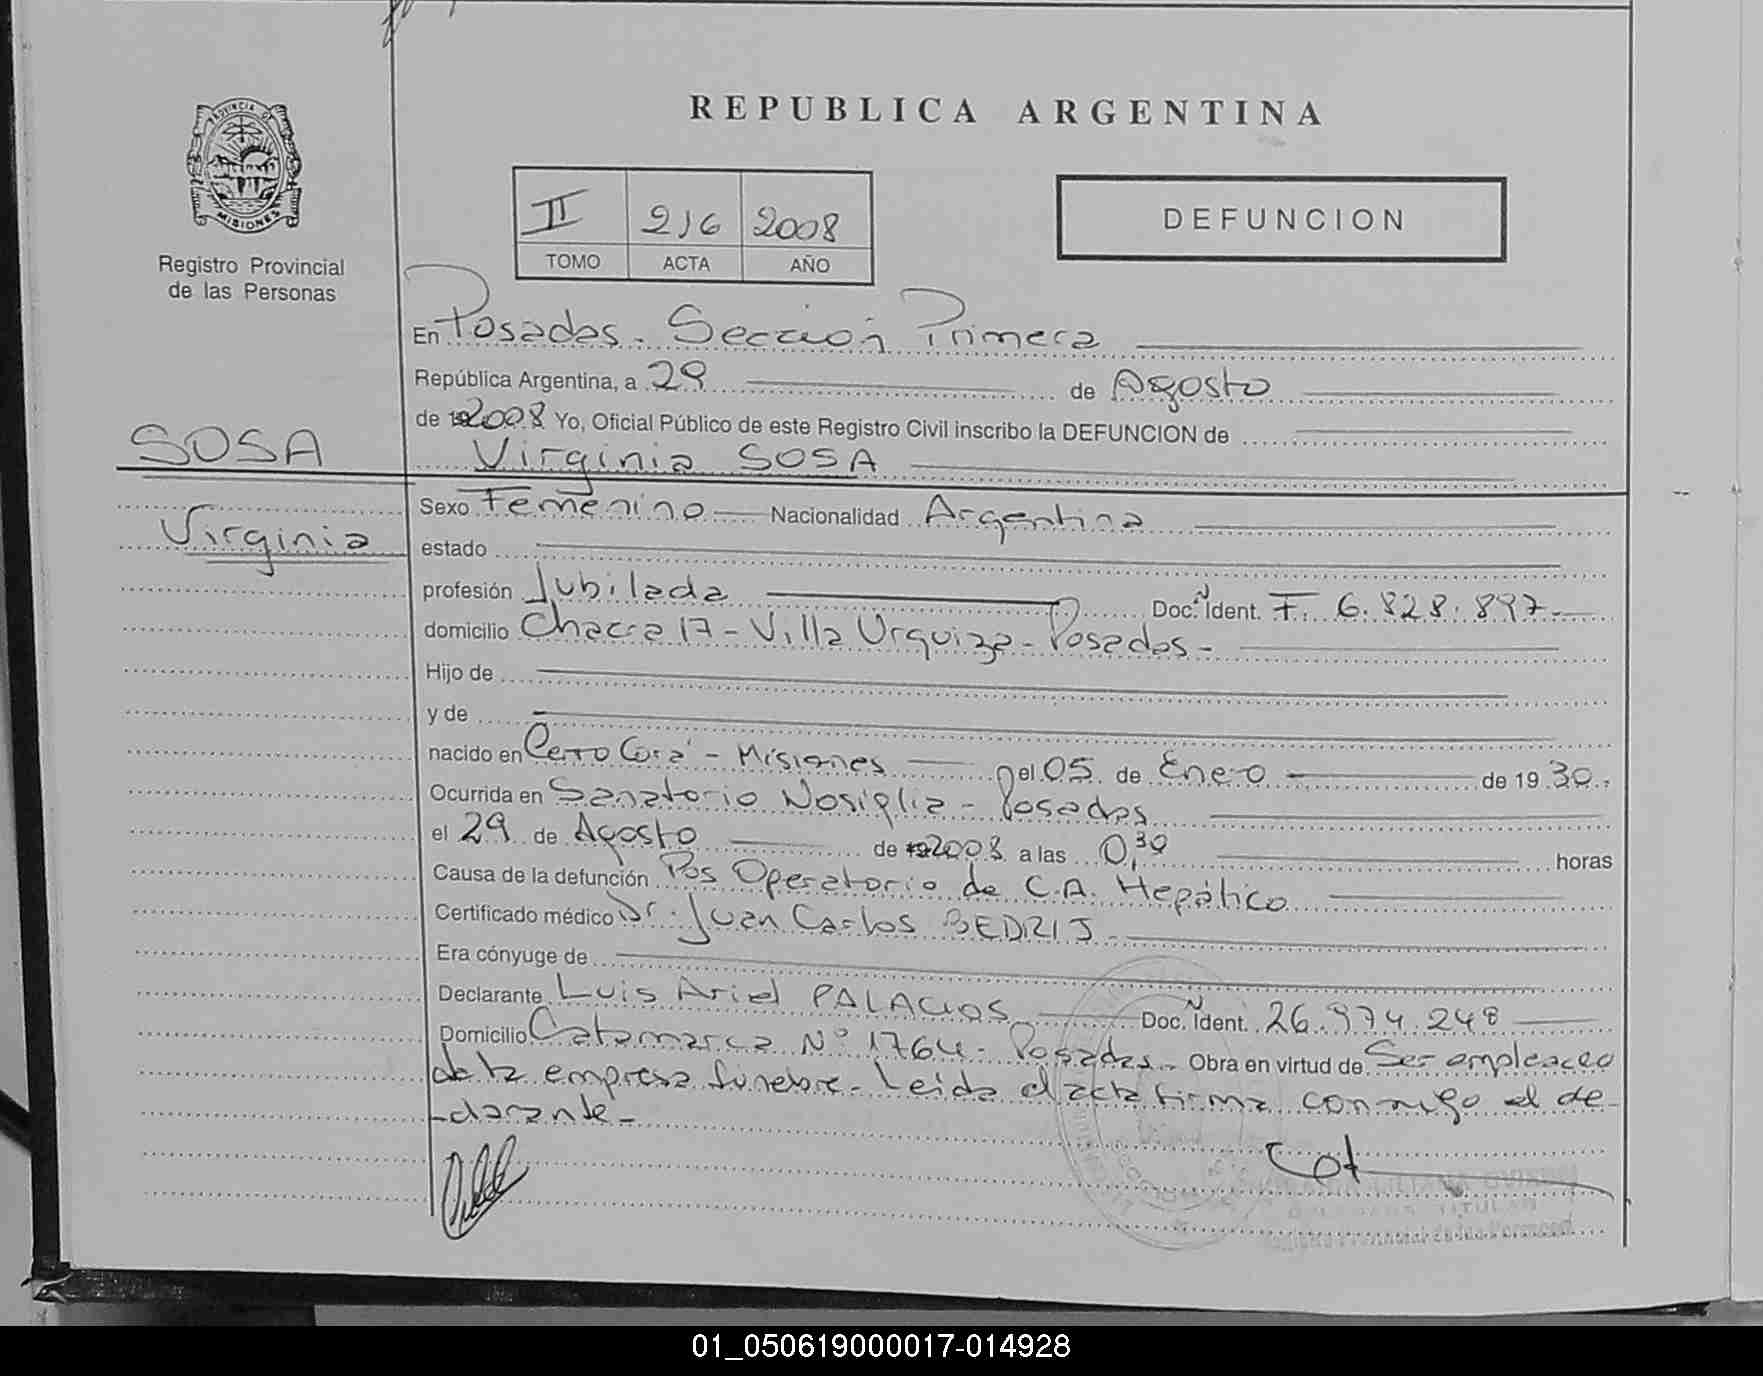 REPUBLICA ARGENTINA
PROVINCIA DE
MISIONES
Registro Provincial
de las Personas
II 216 2008
TOMO ACTA AÑO
DEFUNCION
En Posadas - Sección Primera
República Argentina, a 29 de Agosto
de 2008 Yo, Oficial Público de este Registro Civil inscribo la DEFUNCION de
SOSA
Virginia SOSA
Virginia
Sexo Femenino Nacionalidad Argentina
estado
profesión Jubilada Doc. N Ident. F. 6.828.897.-
domicilio Chacra 17 - Villa Urquiza - Posadas -
Hijo de
y de
nacido en Cerro Corá - Misiones el 05 de Enero de 1930.
Ocurrida en Sanatorio Nosiglia - Posadas
el 29 de Agosto de 2008 a las 0,30 horas
Causa de la defunción Pos Operatorio de C.A. Hepático
Certificado médico Dr. Juan Carlos BEDRIJ
Era cónyuge de
Declarante Luis Ariel PALACIOS Doc. N Ident. 26.974.248
Domicilio Catamarca Nº 1764 - Posadas - Obra en virtud de Ser empleado
de la empresa fúnebre - Leida el acta firma conmigo el de-
-clarante -
TITULAR
Provincial de las Personas
01_050619000017-014928